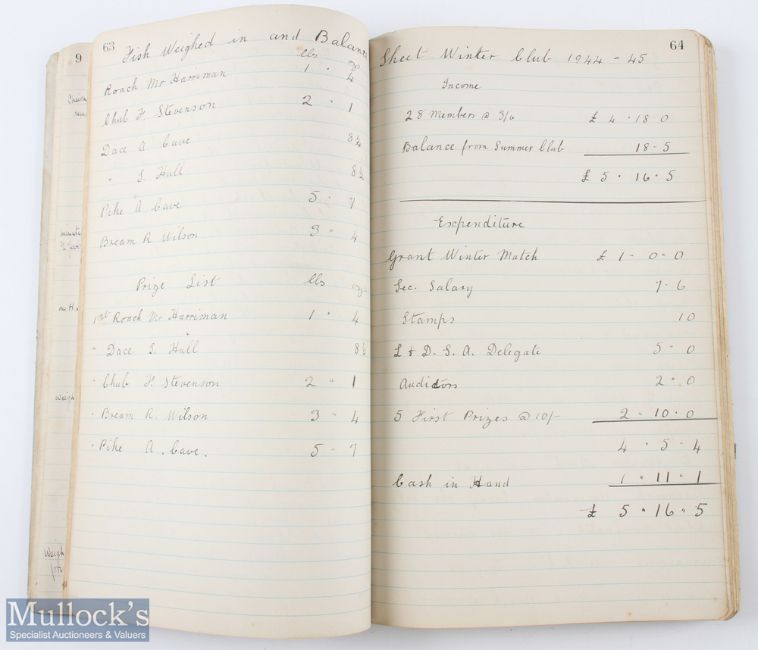 9
63
Fish Weighed in and Balance
lbs oz
Roach Mr Harriman 1 - 4
Chub F. Stevenson 2 - 1
Dace A Cave 8¼
" S. Hall 8½
Pike A Cave 5 - 7
Bream R. Wilson 3 - 4
Prize List lbs oz
1st Roach Mr Harriman 1 - 4
" Dace S. Hall 8½
" Chub F. Stevenson 2 - 1
" Bream R. Wilson 3 - 4
" Pike A. Cave. 5 - 7
64
Sheet Winter Club 1944 - 45
Income
28 Members @ 3/6 £ 4 - 18 0
Balance from Summer Club 18 - 5
£ 5 - 16 - 5
Expenditure
Grant Winter Match £ 1 - 0 - 0
Sec. Salary 7 - 6
Stamps 10
L & D. S. A. Delegate 5 - 0
Auditors 2 - 0
5 First Prizes @ 10/- 2 - 10 - 0
4 - 5 - 4
Cash in Hand 1 - 11 - 1
£ 5 - 16 - 5
Weigh
Mullock's
Specialist Auctioneers & Valuers